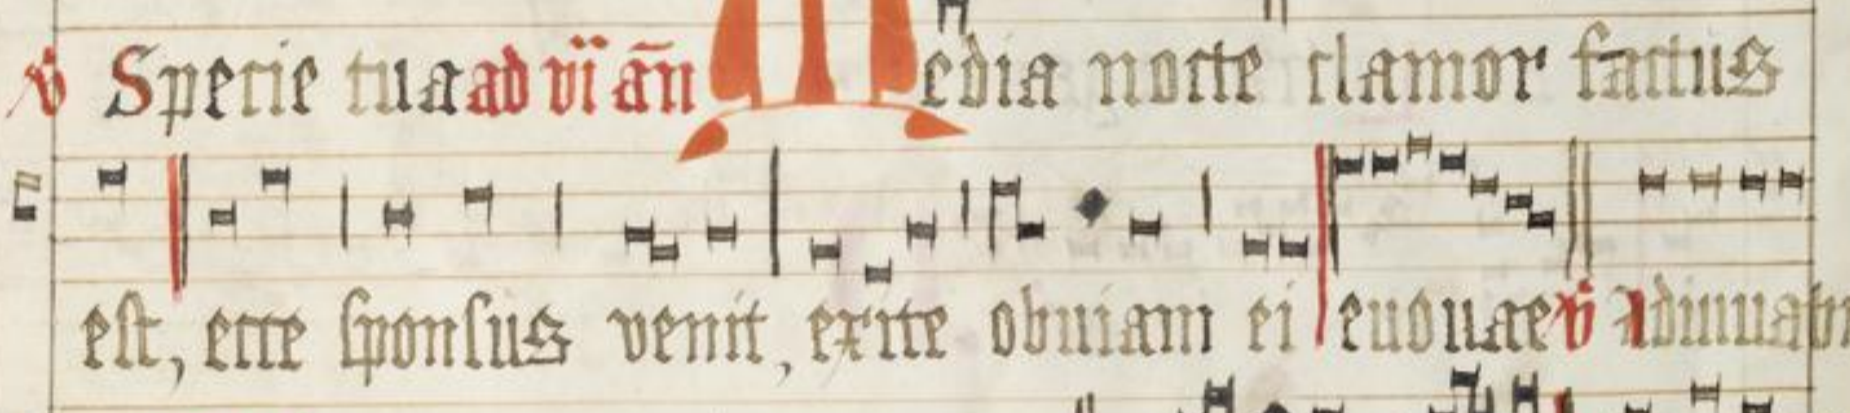 ℣ Specie tua ad vi añ Media nocte clamor factus
est, ecce sponsus venit, exite obuiam ei euouae ℣ Adiuuabit